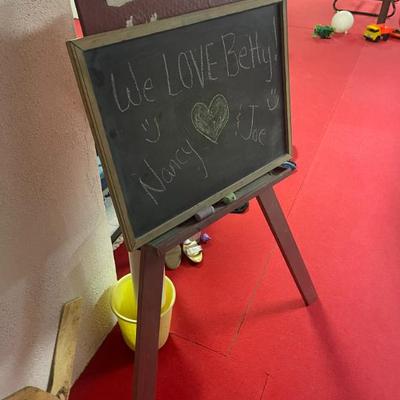 We LOVE Betty!
Nancy & Joe